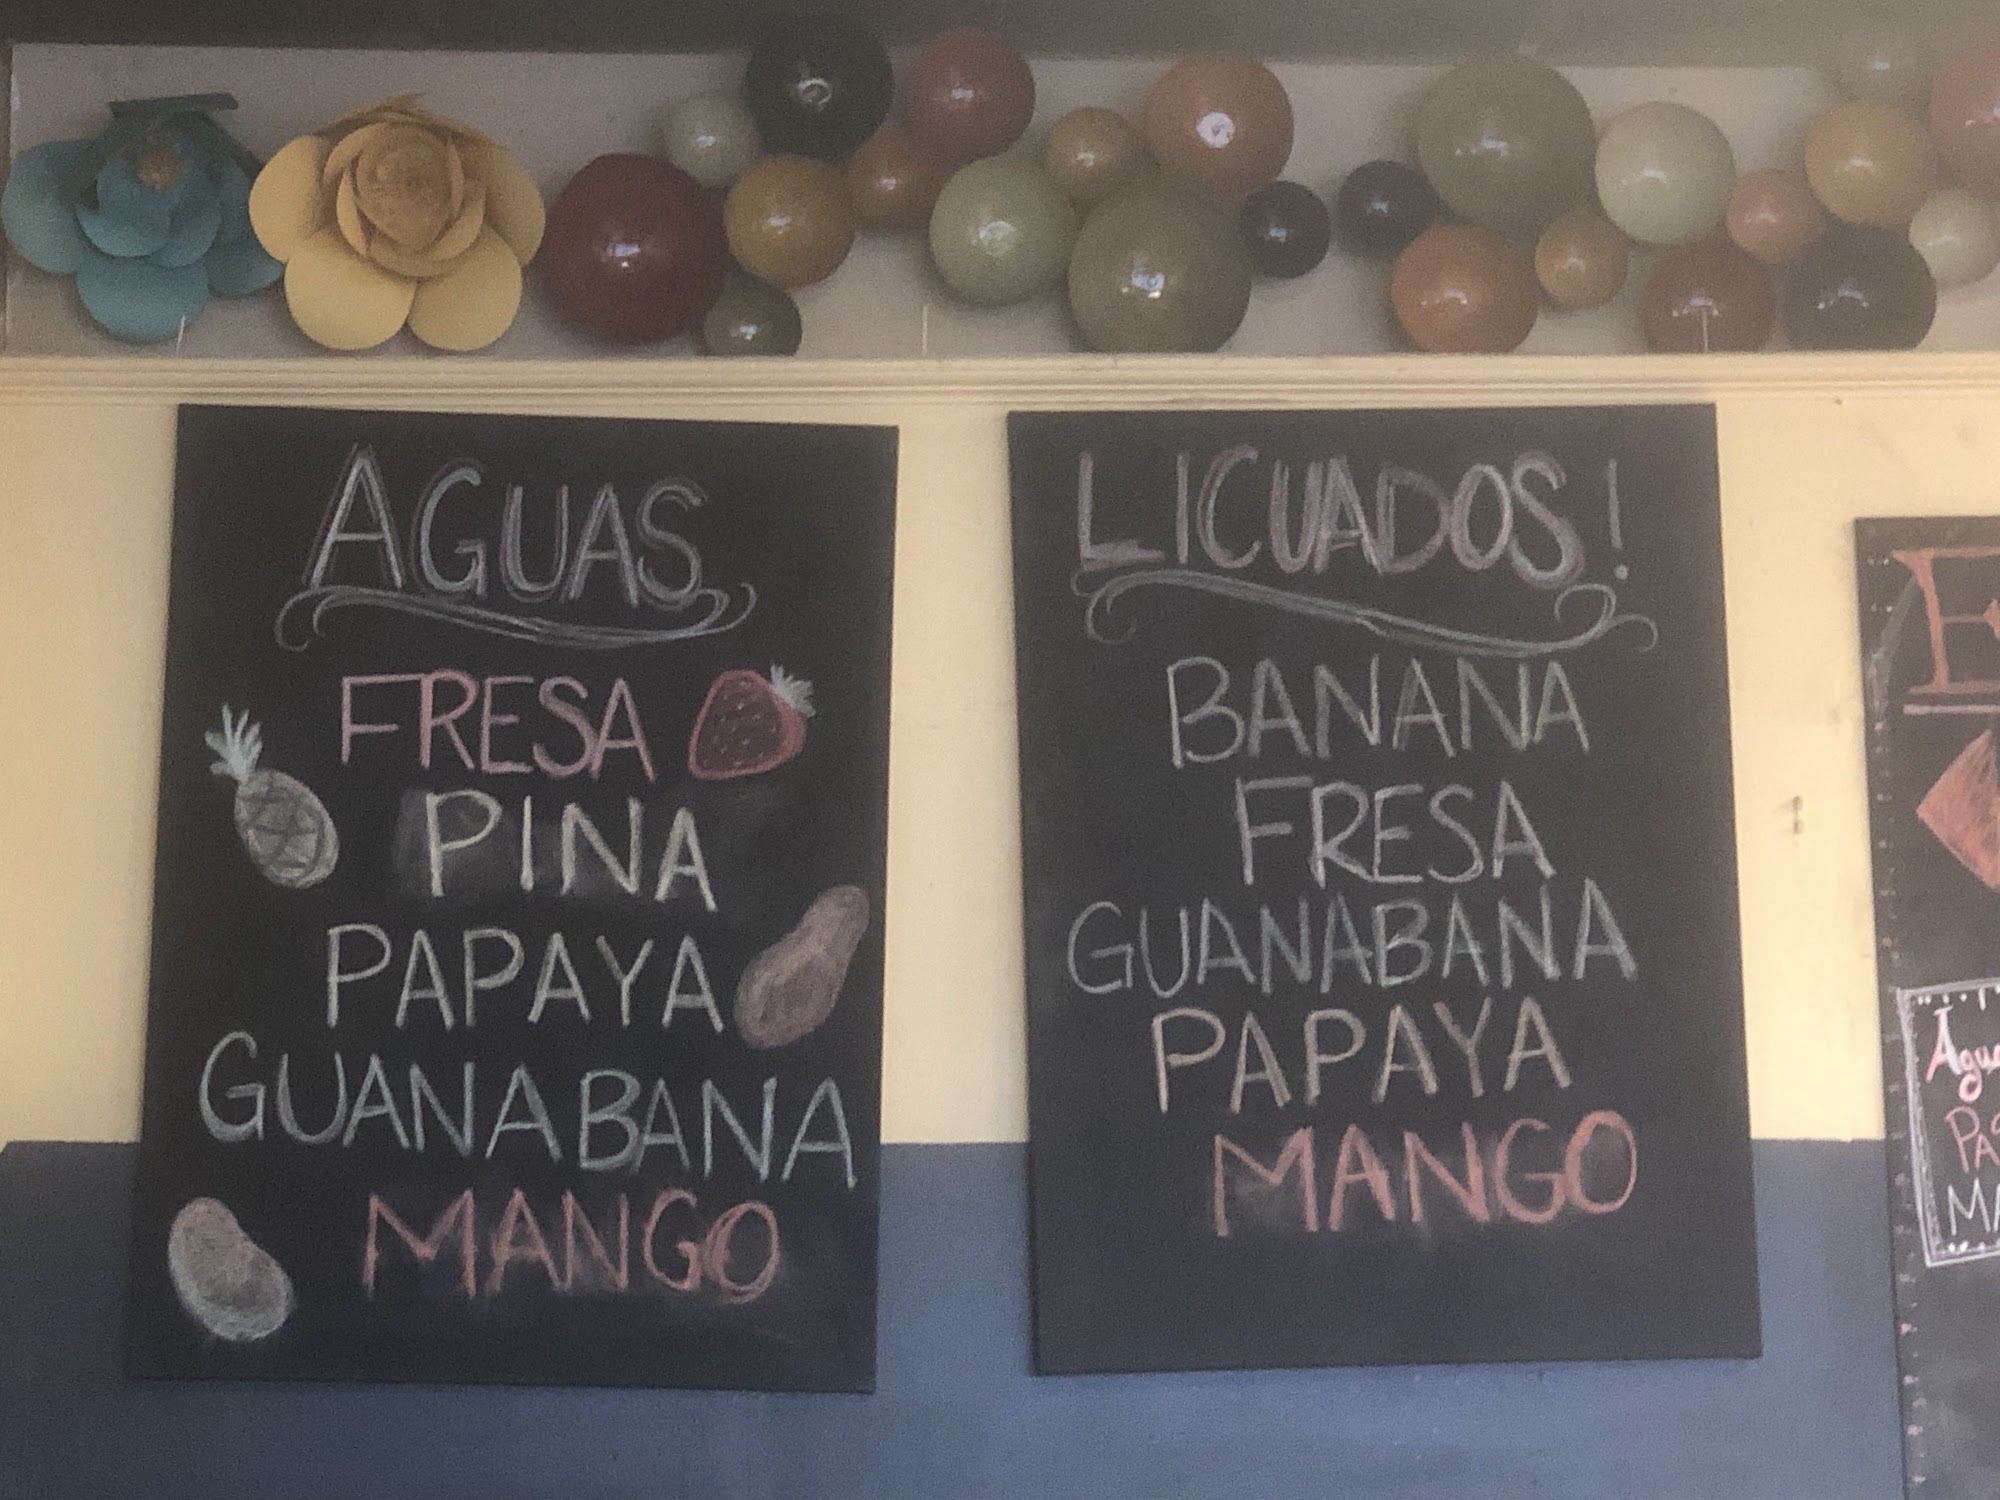 AGUAS
FRESA
PINA
PAPAYA
GUANABANA
MANGO
LICUADOS!
BANANA
FRESA
GUANABANA
PAPAYA
MANGO